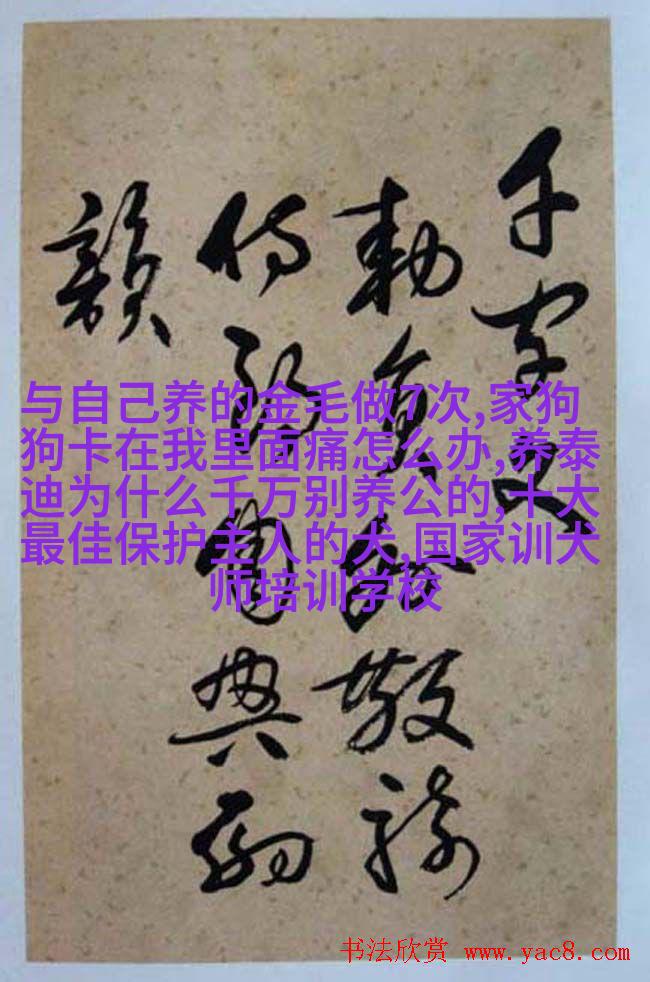 千字文
勅員外散騎
侍郎周興嗣
韻
与自己养的金毛做7次,家狗
狗卡在我里面痛怎么办,养泰
迪为什么千万别养公的,十大
最佳保护主人的犬,国家训犬
师培训学校
书法欣赏 www.yac8.com